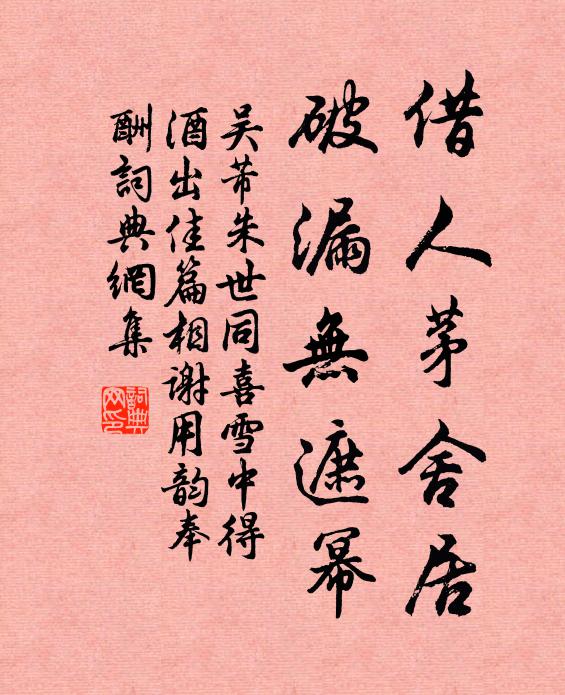 借人茅舍居
破漏無遮幂
吴芾朱世同喜雪中得
酒出佳篇相谢用韵奉
酬詞典網集
詞典
网印